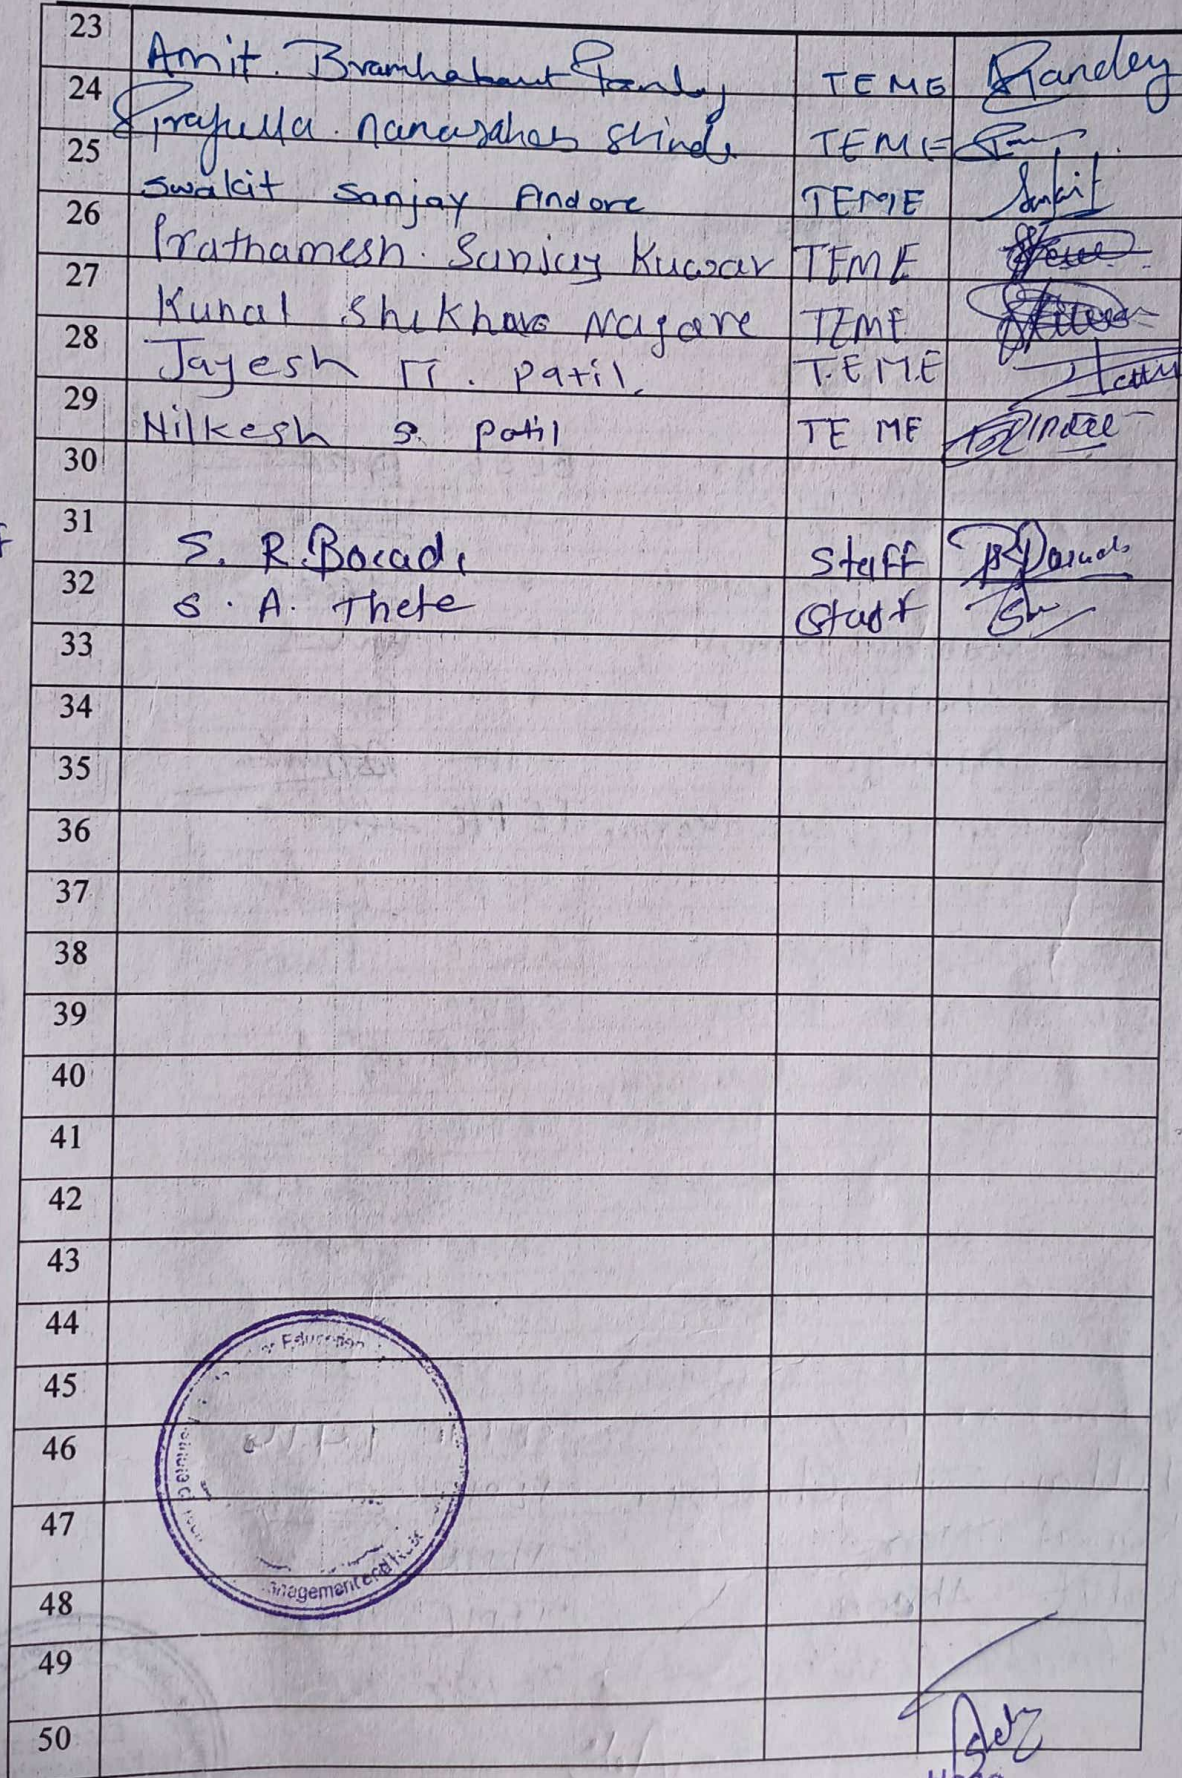 23 Amit. Bramhabaut Pandey TEME Pandey
24 Prafulla. nanasaheb Shinde TEME
25 Swakit Sanjay Andore TEME Swakit
26 Prathamesh. Sanjay Kuwar TEME
27 Kunal Shikhare Nagare TEME
28 Jayesh . Patil. T.E.M.E
29 Nilkesh S. Patil TE ME
30
31 S. R. Borade Staff
32 S. A. Thete Staff
33
34
35
36
37
38
39
40
41
42
43
44
Education
45
46
47
management and
48
49
50